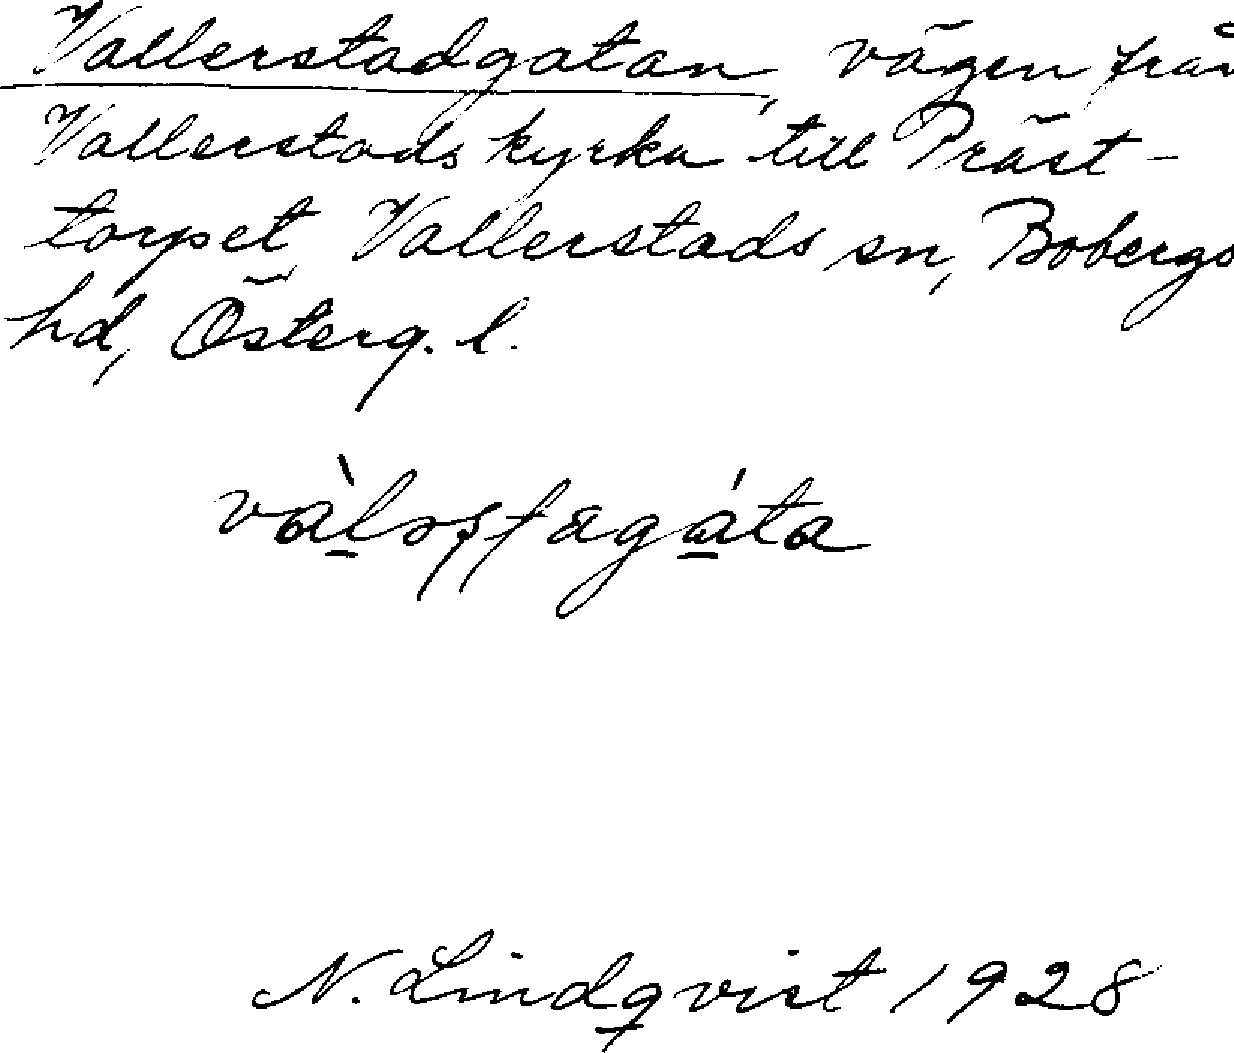 Vallerstadgatan, vägen från
Vallerstads kyrka till Präst-
torpet, Vallerstads sn, Bobergs
hd, Österg. l.
N. Lindqvist 1928